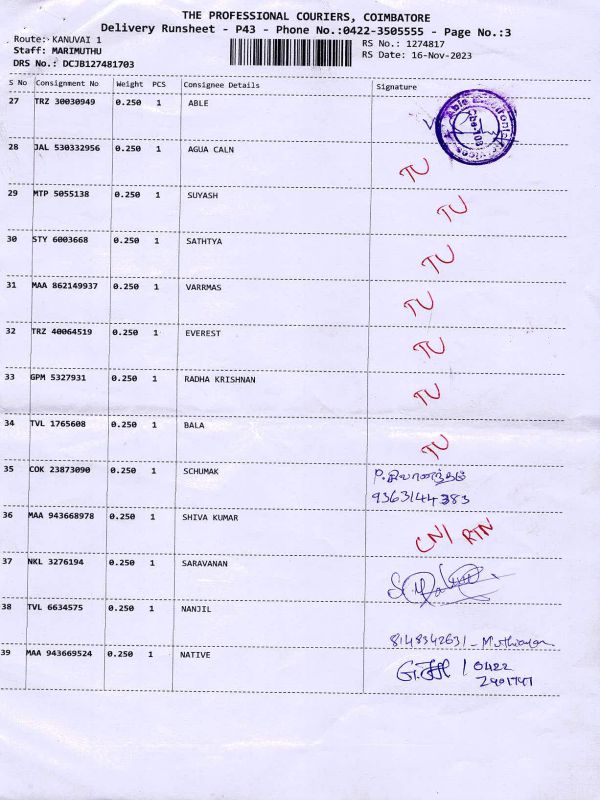 THE PROFESSIONAL COURIERS, COIMBATORE
Delivery Runsheet - P43 - Phone No.:0422-3505555 - Page No.:3
Route: KANUVAI 1 RS No.: 1274817
Staff: MARIMUTHU RS Date: 16-Nov-2023
DRS No.: DCJB127481703
S No Consignment No Weight PCS Consignee Details Signature
27 TRZ 30030949 0.250 1 ABLE
Able Electronic
28 JAL 530332956 0.250 1 AGUA CALN TU
29 MTP 5055138 0.250 1 SUYASH TU
30 STY 6003668 0.250 1 SATHTYA TU
31 MAA 862149937 0.250 1 VARRMAS TU
32 TRZ 40064519 0.250 1 EVEREST TU
33 GPM 5327931 0.250 1 RADHA KRISHNAN TU
34 TVL 1765608 0.250 1 BALA TU
35 COK 23873090 0.250 1 SCHUMAK P.சிவானந்தம்
9363144383
36 MAA 943668978 0.250 1 SHIVA KUMAR CN/ RTN
37 NKL 3276194 0.250 1 SARAVANAN
38 TVL 6634575 0.250 1 NANJIL
8148342631
39 MAA 943669524 0.250 1 NATIVE 0422
2401741